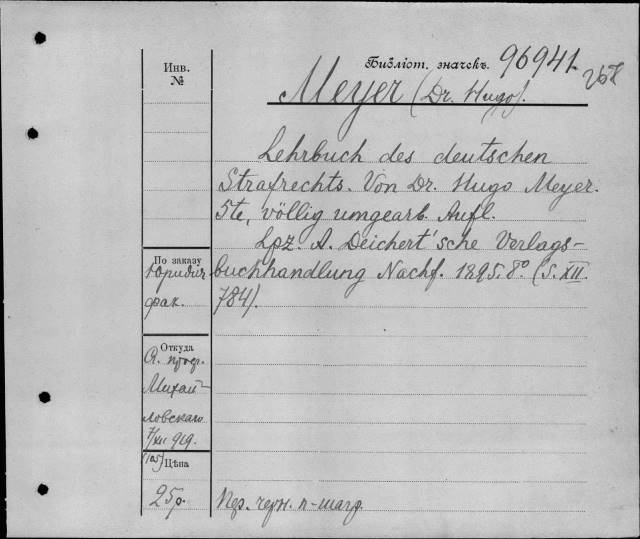 Инв. №
Библіот. значекъ. 96941.
Meyer (Dr. Hugo).
Lehrbuch des deutschen
Strafrechts. Von Dr. Hugo Meyer.
5te, völlig umgearb. Aufl.
Lpz. A. Deichert'sche Verlags-
buchhandlung Nachf. 1895. 8° (S. XII.
784).
По заказу
Юридич.
фак.
Откуда
Михай-
ловскаго
7/XII 919.
Цѣна
25 р.
Пер. черн. п-шагр.